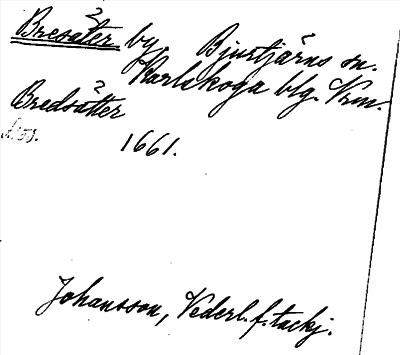 Bresäter by Bjurtjärns sn.
Karlskoga blg. Vrm.
Bredsätter
1661.
Johansson, Vederl. f. tackj.